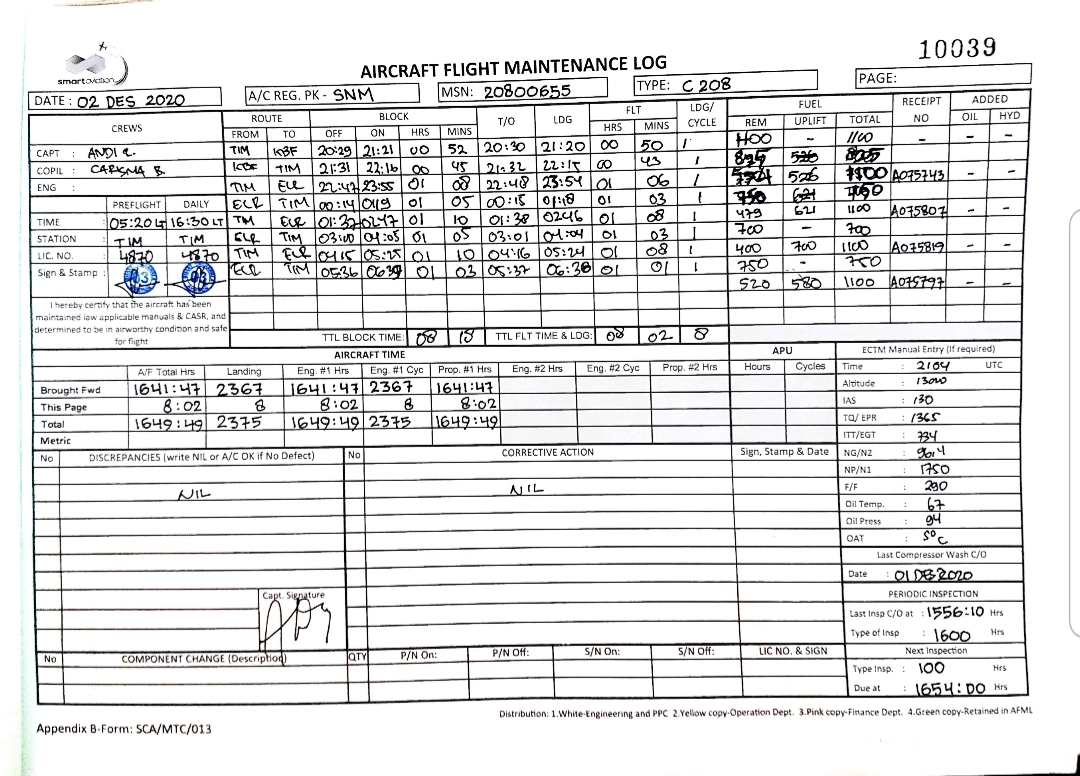 10039
smartaviation
AIRCRAFT FLIGHT MAINTENANCE LOG
DATE : 02 DES 2020 A/C REG. PK - SNM MSN: 20800655 TYPE: C 208 PAGE:
CREWS ROUTE BLOCK T/O LDG FLT LDG/ CYCLE FUEL RECEIPT NO ADDED
FROM TO OFF ON HRS MINS HRS MINS REM UPLIFT TOTAL OIL HYD
CAPT : ANDI R. TIM KBF 20:29 21:21 00 52 20:30 21:20 00 50 1 1100 - 1100 - -
COPIL : CARISMA B. KBF TIM 21:31 22:16 00 45 21:32 22:15 00 43 1
ENG : TIM ELR 22:47 23:55 01 08 22:48 23:54 01 06 1 526 1100 A075743 - -
PREFLIGHT DAILY ELR TIM 00:14 0119 01 05 00:15 01:18 01 03 1
TIME : 05:20 LT 16:30 LT TIM ELR 01:37 0247 01 10 01:38 0246 01 08 1 479 621 1100 A075807 - -
STATION : TIM TIM ELR TIM 03:00 04:05 01 05 03:01 04:04 01 03 1 700 - 700
LIC. NO. : 4870 4870 TIM ELR 0415 05:25 01 10 04:16 05:24 01 08 1 400 700 1100 A075819 - -
Sign & Stamp : ELR TIM 0536 0639 01 03 05:37 06:38 01 01 1 750 - 750
520 580 1100 A075797 - -
I hereby certify that the aircraft has been
maintained iaw applicable manuals & CASR, and
determined to be in airworthy condition and safe
for flight
TTL BLOCK TIME: 08 18 TTL FLT TIME & LDG: 08 02 8
AIRCRAFT TIME APU ECTM Manual Entry (If required)
A/F Total Hrs Landing Eng. #1 Hrs Eng. #1 Cyc Prop. #1 Hrs Eng. #2 Hrs Eng. #2 Cyc Prop. #2 Hrs Hours Cycles Time : 2104 UTC
Brought Fwd 1641:47 2367 1641:47 2367 1641:47 Altitude : 13000
This Page 8:02 8 8:02 8 8:02 IAS : 130
Total 1649:49 2375 1649:49 2375 1649:49 TQ/ EPR : 1365
Metric ITT/EGT : 734
No DISCREPANCIES (write NIL or A/C OK if No Defect) No CORRECTIVE ACTION Sign, Stamp & Date NG/N2 : 96.4
NP/N1 : 1750
NIL NIL F/F : 290
Oil Temp. : 67
Oil Press : 94
OAT : 5°C
Last Compressor Wash C/O
Date : 01 DES 2020
Capt. Signature PERIODIC INSPECTION
Last Insp C/O at : 1556:10 Hrs
Type of Insp : 1600 Hrs
No COMPONENT CHANGE (Description) QTY P/N On: P/N Off: S/N On: S/N Off: LIC NO. & SIGN Next Inspection
Type Insp. : 100 Hrs
Due at : 1654:00 Hrs
Distribution: 1.White-Engineering and PPC 2.Yellow copy-Operation Dept. 3.Pink copy-Finance Dept. 4.Green copy-Retained in AFML
Appendix B-Form: SCA/MTC/013